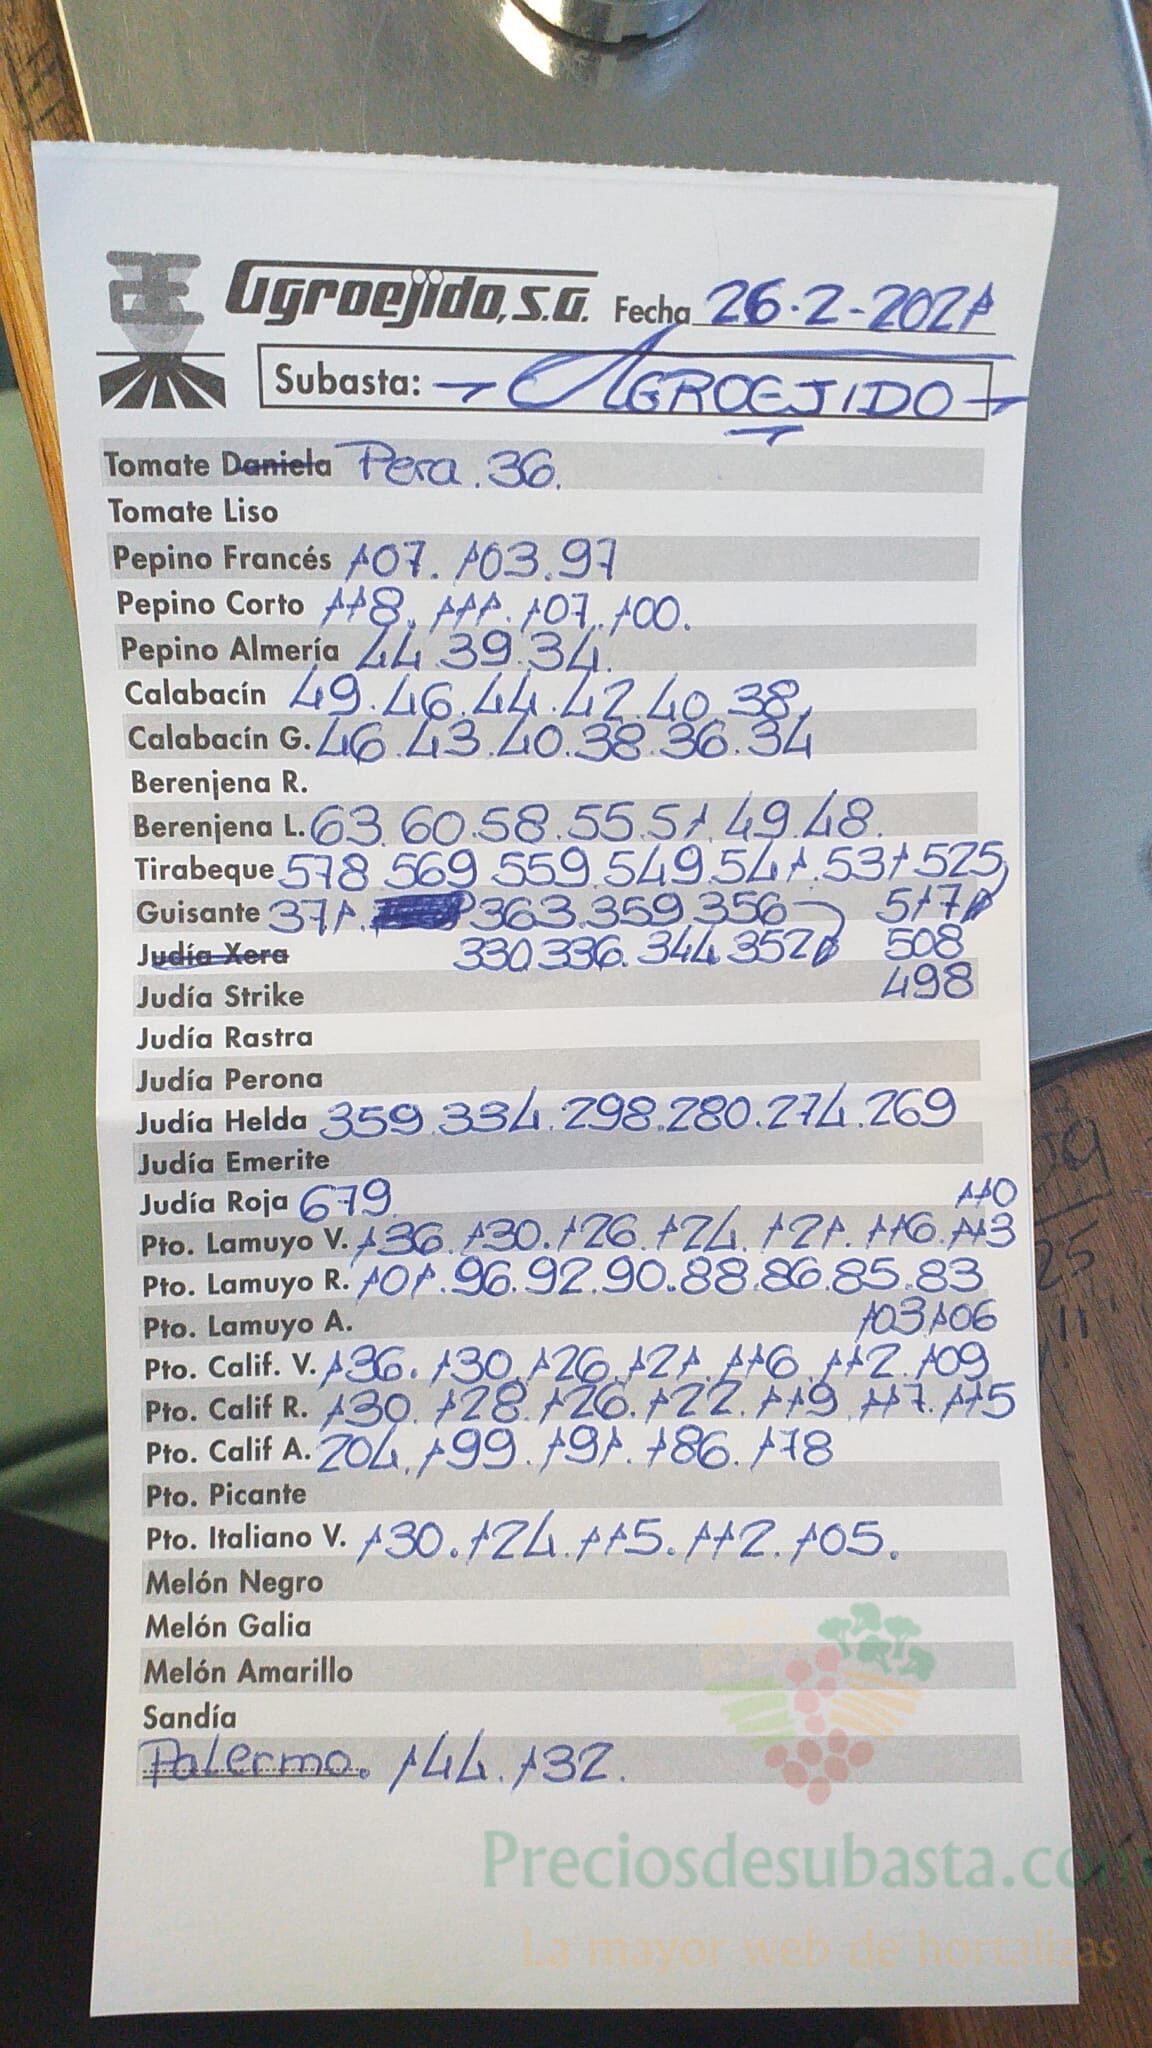 Agroejido, S.A. Fecha 26-2-2021
Subasta: - AGROEJIDO -
Tomate Daniela Pera. 36.
Tomate Liso
Pepino Francés 107. 103. 97
Pepino Corto 118. 111. 107. 100.
Pepino Almería 44. 39. 34.
Calabacín 49. 46. 44. 42. 40. 38.
Calabacín G. 46. 43. 40. 38. 36. 34
Berenjena R.
Berenjena L. 63. 60. 58. 55. 51. 49. 48.
Tirabeque 578. 569. 559. 549. 541. 531 525
Guisante 371. 363. 359. 356 517
Judía Xera 330. 336. 344. 352 508
Judía Strike 498
Judía Rastra
Judía Perona
Judía Helda 359. 334. 298. 280. 274. 269
Judía Emerite
Judía Roja 679 110
Pto. Lamuyo V. 136. 130. 126. 124. 121. 116. 113
Pto. Lamuyo R. 101. 96. 92. 90. 88. 86. 85. 83
Pto. Lamuyo A. 103 106
Pto. Calif. V. 136. 130. 126. 121. 116. 112. 109
Pto. Calif R. 130. 128. 126. 122. 119. 117. 115
Pto. Calif A. 204. 199. 191. 186. 178
Pto. Picante
Pto. Italiano V. 130. 124. 115. 112. 105.
Melón Negro
Melón Galia
Melón Amarillo
Sandía
Palermo. 144. 132.
Preciosdesubasta.com
La mayor web de hortalizas
25
11